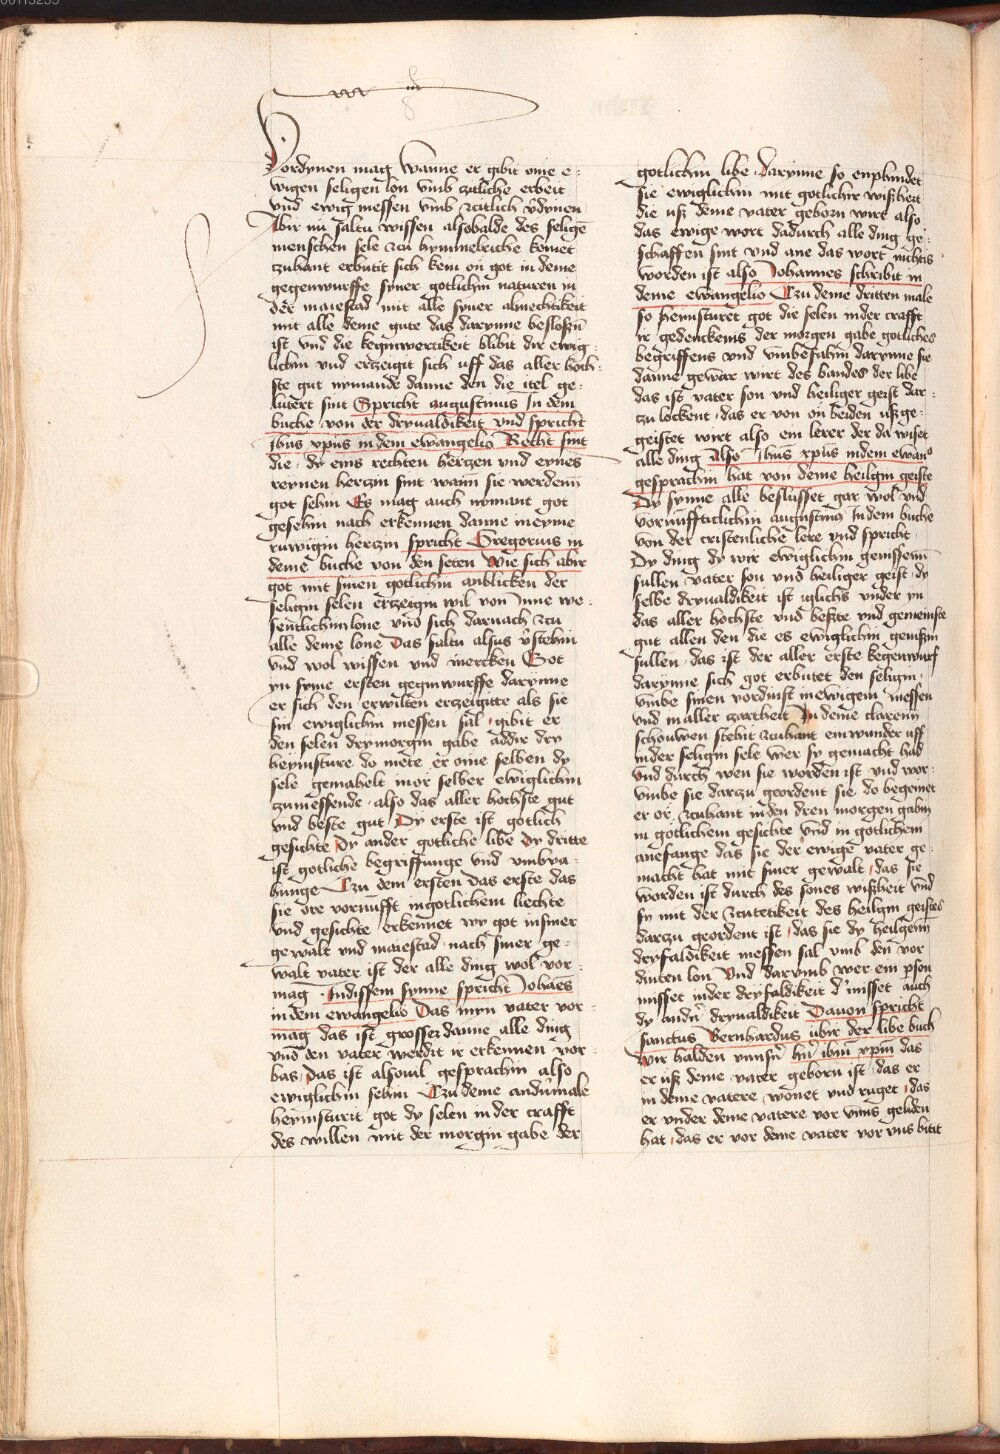 vordynen mag wanne er gibit ome e-
wigen seligen lon vmb zcitliche erbeit
vnd ewig nyessen vmb zcitlich vordynen
Abir nu saltu wissen alsobalde des selige
menschen sele zcu hymmelriche komet
zuhant erbutit sich kein on got in deme
gegenwurffe syner gotlichin naturen in
der maiestad mit alle syner almechtikeit
mit alle deme gute das darynne beslosen
ist vnd die keginwertikeit blibit dir ewig-
lichin vnd erczeigit sich uff das aller hoch-
ste gut nymande danne den die itel ge-
lutert sint Spricht augustinus In dem
buche von der dryualdikeit vnd spricht
ihus xpus in dem ewangelio Recht sint
die dy eins rechten herczen vnd eynes
reynen herczin sint wann sie werdenn
got sehin Es mag auch nymant got
gesehin nach erkennen danne in eyme
ruwigin herczin spricht Gregorius in
deme buche von den seten Wie sich abir
got mit sinen gotlichin anblicken der
seligin selen erczeigin wil von Jnne we-
sentlichin lone vnd sich darnach zcu
alle deme lone Das saltu alsus vorstehin
vnd wol wissen vnd mercken Got
yn syme ersten gegenwurffe darynne
er sich den erwilten erczeigitte als sie
sin ewiglichin nyessen sal gibit er
den selen dry morgin gabe addir dry
heymsture do mete er ome selben dy
sele gemahelt in or selber ewiglichin
zunyessende also das aller hochste gut
vnd beste gut Dy erste ist gotlich
gesichte Dy ander gotliche libe Dy dritte
ist gotliche begriffunge vnd vmbva-
hunge Czu dem ersten das erste das
sie ore vornufft in gotlichem liechte
vnd gesichte erkennet wy got in siner
gewalt vnd maiestad nach siner ge-
walt vater ist der alle ding wol vor-
mag Indissem synne spricht Johanes
in dem ewangelio Das myn vater vor-
mag das ist grosser danne alle ding
vnd den vater werdit ir erkennen vor-
bas das ist alsouil gesprachin also
ewiglichin sehin Czu deme andirmale
heymsturit got dy selen in der crafft
des willen mit der morgin gabe der
gotlichin libe darynne so enphindet
sie ewiglichin mit gotlichir wißheit
die uß deme vater geborn wirt also
das ewige wort dadurch alle ding ge-
schaffen sint vnd ane das wort nichtis
worden ist also Johannes schribit in
deme ewangelio Czu deme dritten male
so heimsturet got die selen in der crafft
ir gedencknis der morgen gabe gotliches
begriffens vnd vmbefahin darynne sie
danne gewar wirt des bandes der libe
das ist vater son vnd heiliger geist dar-
zu lockent das er von on beiden ußge-
geistet wirt also ein lerer der da wiset
alle ding Also ihus xpus in dem ewan
gesprachin hat von deme heiligin geiste
Dy synne alle beslusset gar wol vnd
vornufftiglichin augustinus In dem buche
von der cristenliche lere vnd spricht
Dy ding dy wir ewiglichin genissenn
sullen vater son vnd heiliger geist dy
selbe dryualdikeit ist iglichs vnder yn
das aller hochste vnd beste vnd gemeinste
gut allen den die es ewiglichin genissin
sullen das ist der aller erste kegenwurf
darynne sich got erbutet den seligin
vmbe sinen vordinst in ewigem nyessen
vnd in aller zcartheit In deme clarenn
schouwen stehit zcuhant ein wunder uff
in der seligin sele wer sy gemacht had
vnd durch wen sie worden ist vnd wor-
vmbe sie darzu geordent sie do begeinet
er or zcuhant in den dren morgen gabin
in gotlichem gesichte vnd in gotlichem
anefange das sie der ewige vater ge-
macht hat mit siner gewalt das sie
worden ist durch des sones wißheit vnd
sy mit der zcutetikeit des heiligin geistes
darzu geordent ist das sie dy heiligenn
dryfaldikeit nyessen sal vmb den vor
dinten lon Vnd darvmb wer ein person
nisset in der dryfaldikeit der nisset auch
dy andern dryualdikeit Dauon spricht
sanctus Bernhardus vbir der libe buch
Wir halden vnnsern hern ihm xpm das
er uß deme vater geborn ist das er
in deme vatere wonet vnd ruget das
er vnder deme vatere vor vnns geliden
hat das er vor deme vater vor vns bitit